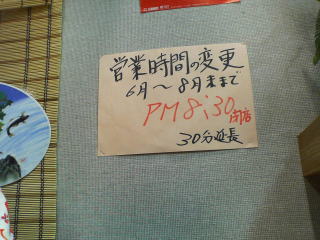 営業時間の変更
6月〜8月末まで
PM8:30閉店
30分延長